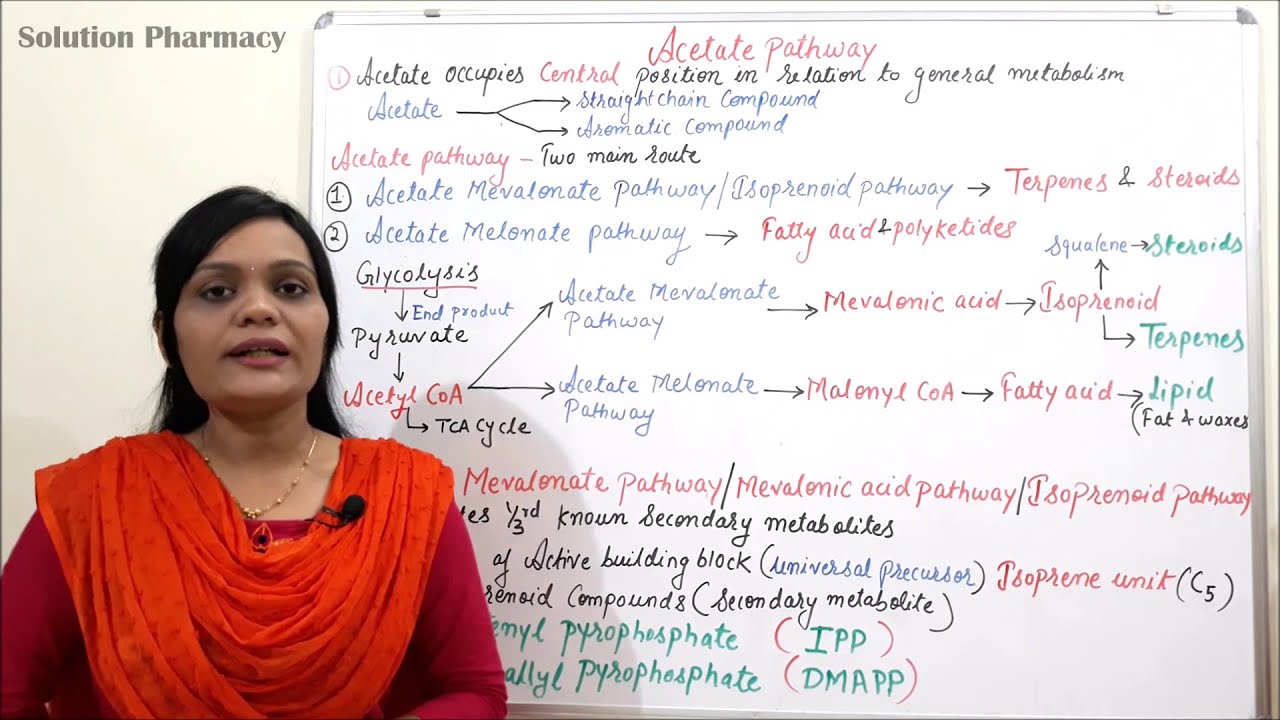 Solution Pharmacy
Acetate Pathway
① Acetate occupies Central position in relation to general metabolism
Acetate → Straight chain Compound
→ Aromatic Compound
Acetate pathway – Two main route
① Acetate Mevalonate Pathway/Isoprenoid pathway → Terpenes & Steroids
② Acetate Melonate pathway → Fatty acid & polyketides
Squalene → Steroids
Glycolysis
↓ End product
Pyruvate
↓
Acetyl CoA
↳ TCA cycle
Acetate Mevalonate Pathway → Mevalonic acid → Isoprenoid
↳ Terpenes
Acetate Melonate Pathway → Malonyl CoA → Fatty acid → Lipid
(Fat & waxes
Mevalonate pathway/Mevalonic acid pathway/Isoprenoid pathway
1/3rd known Secondary metabolites
of Active building block (universal precursor) Isoprene unit (C5)
Compounds (Secondary metabolite)
pyrophosphate (IPP)
pyrophosphate (DMAPP)